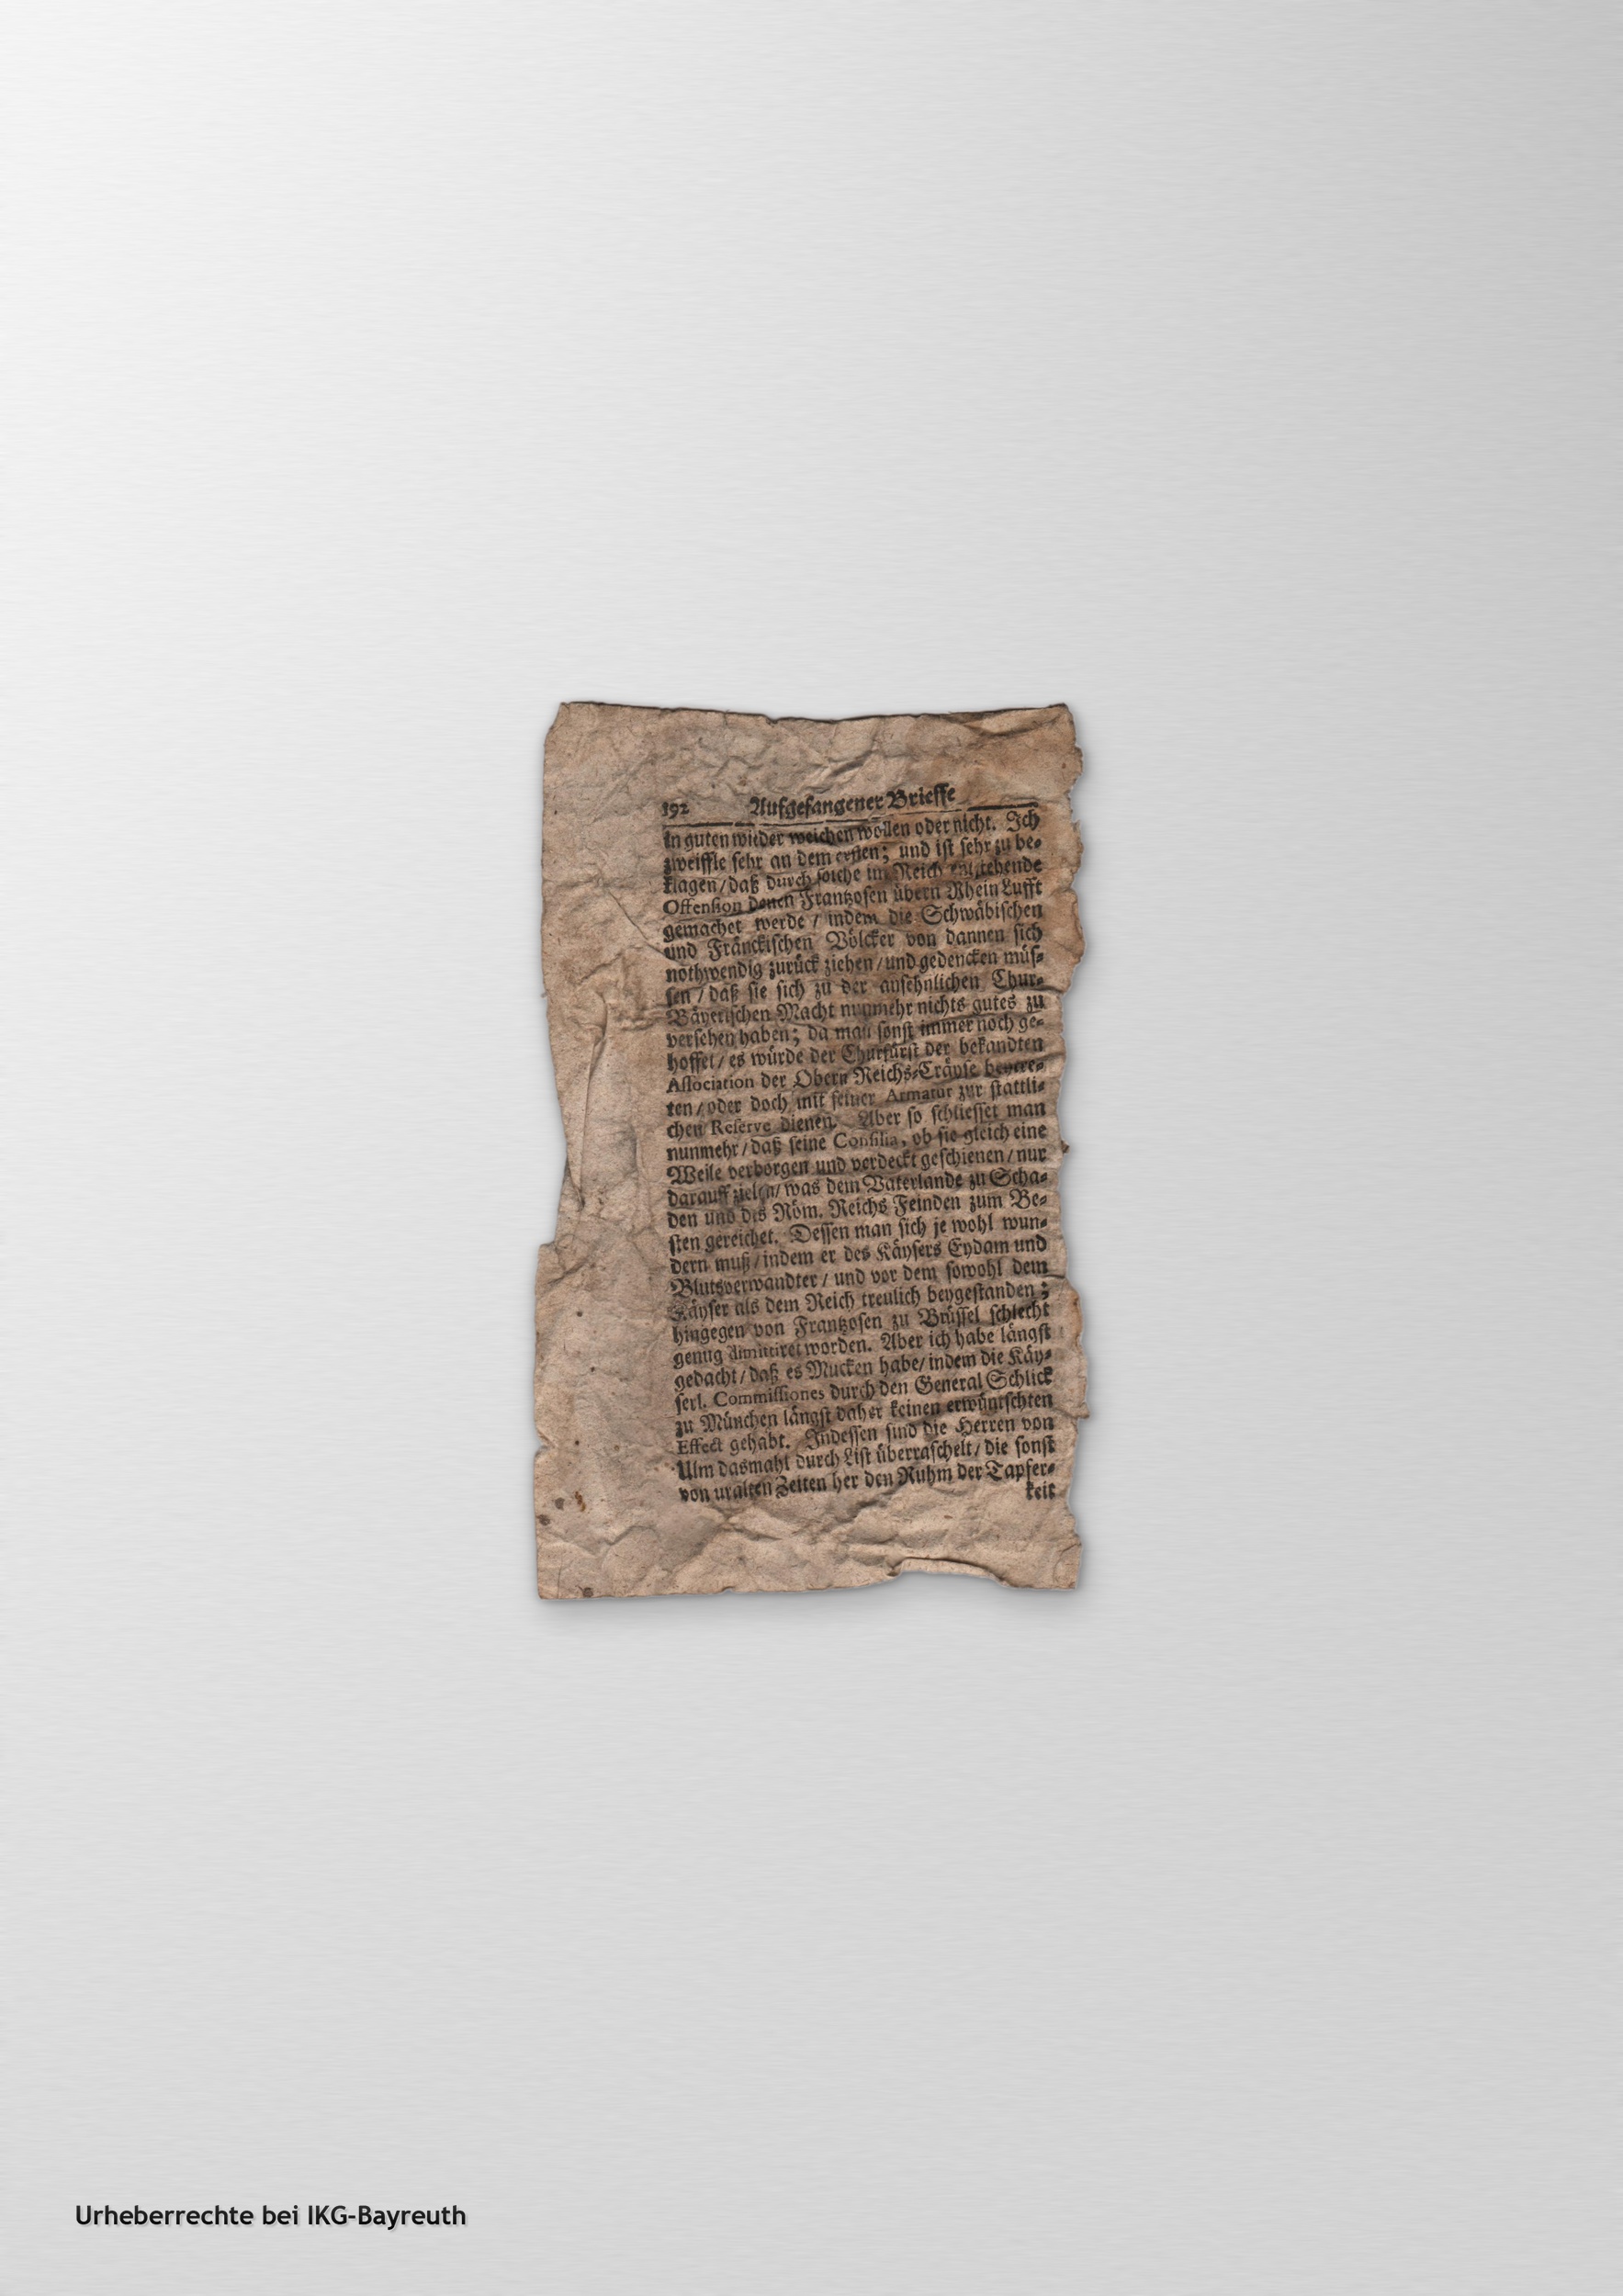 192 Aufgefangener Brieffe
in guten wieder weichen wollen oder nicht. Ich
zweiffle sehr an dem ersten; und ist sehr zu be-
klagen/daß durch solche im Reich entstehende
Offension denen Frantzosen übern Rhein Lufft
gemachet werde / indem die Schwäbischen
und Fränckischen Völcker von dannen sich
nothwendig zurück ziehen/und gedencken müs-
sen / daß sie sich zu der ansehnlichen Chur-
Bäyerischen Macht nunmehr nichts gutes zu
versehen haben; da man sonst immer noch ge-
hoffet/ es würde der Churfürst der bekandten
Association der Obern Reichs-Cräyse beytre-
ten/oder doch mit seiner Armatur zur stattli-
chen Reserve dienen. Aber so schliesset man
nunmehr/daß seine Consilia, ob sie gleich eine
Weile verborgen und verdeckt geschienen/nur
darauff zielen/was dem Vaterlande zu Scha-
den und des Röm. Reichs Feinden zum Be-
sten gereichet. Dessen man sich je wohl wun-
dern muß/indem er des Käysers Eydam und
Blutsverwandter/ und vor dem sowohl dem
Käyser als dem Reich treulich beygestanden;
hingegen von Frantzosen zu Brüssel schlecht
genug admittiret worden. Aber ich habe längst
gedacht/daß es Mucken habe/indem die Käy-
serl. Commissiones durch den General Schlick
zu München längst daher keinen erwüntschten
Effect gehabt. Indessen sind die Herren von
Ulm dasmahl durch List überraschelt/die sonst
von uralten Zeiten her den Ruhm der Tapfer-
keit
Urheberrechte bei IKG-Bayreuth